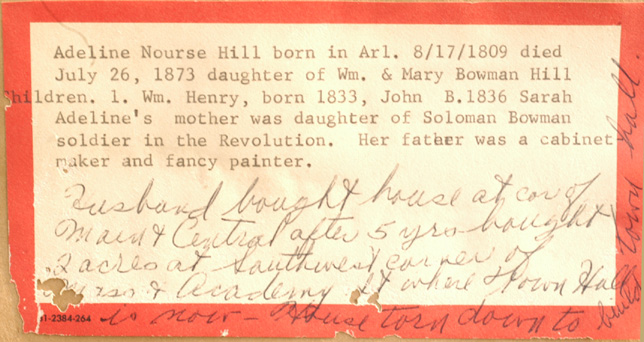 Adeline Nourse Hill born in Arl. 8/17/1809 died
July 26, 1873 daughter of Wm. & Mary Bowman Hill
Children. 1. Wm. Henry, born 1833, John B.1836 Sarah
Adeline's mother was daughter of Soloman Bowman
soldier in the Revolution. Her father was a cabinet
maker and fancy painter.
Husband bought house at cor of
Main & Central after 5 yrs bought
2 acres at Southwest corner of
& Academy St where Town Hall
is now - House torn down to
build town hall.
1-2384-264